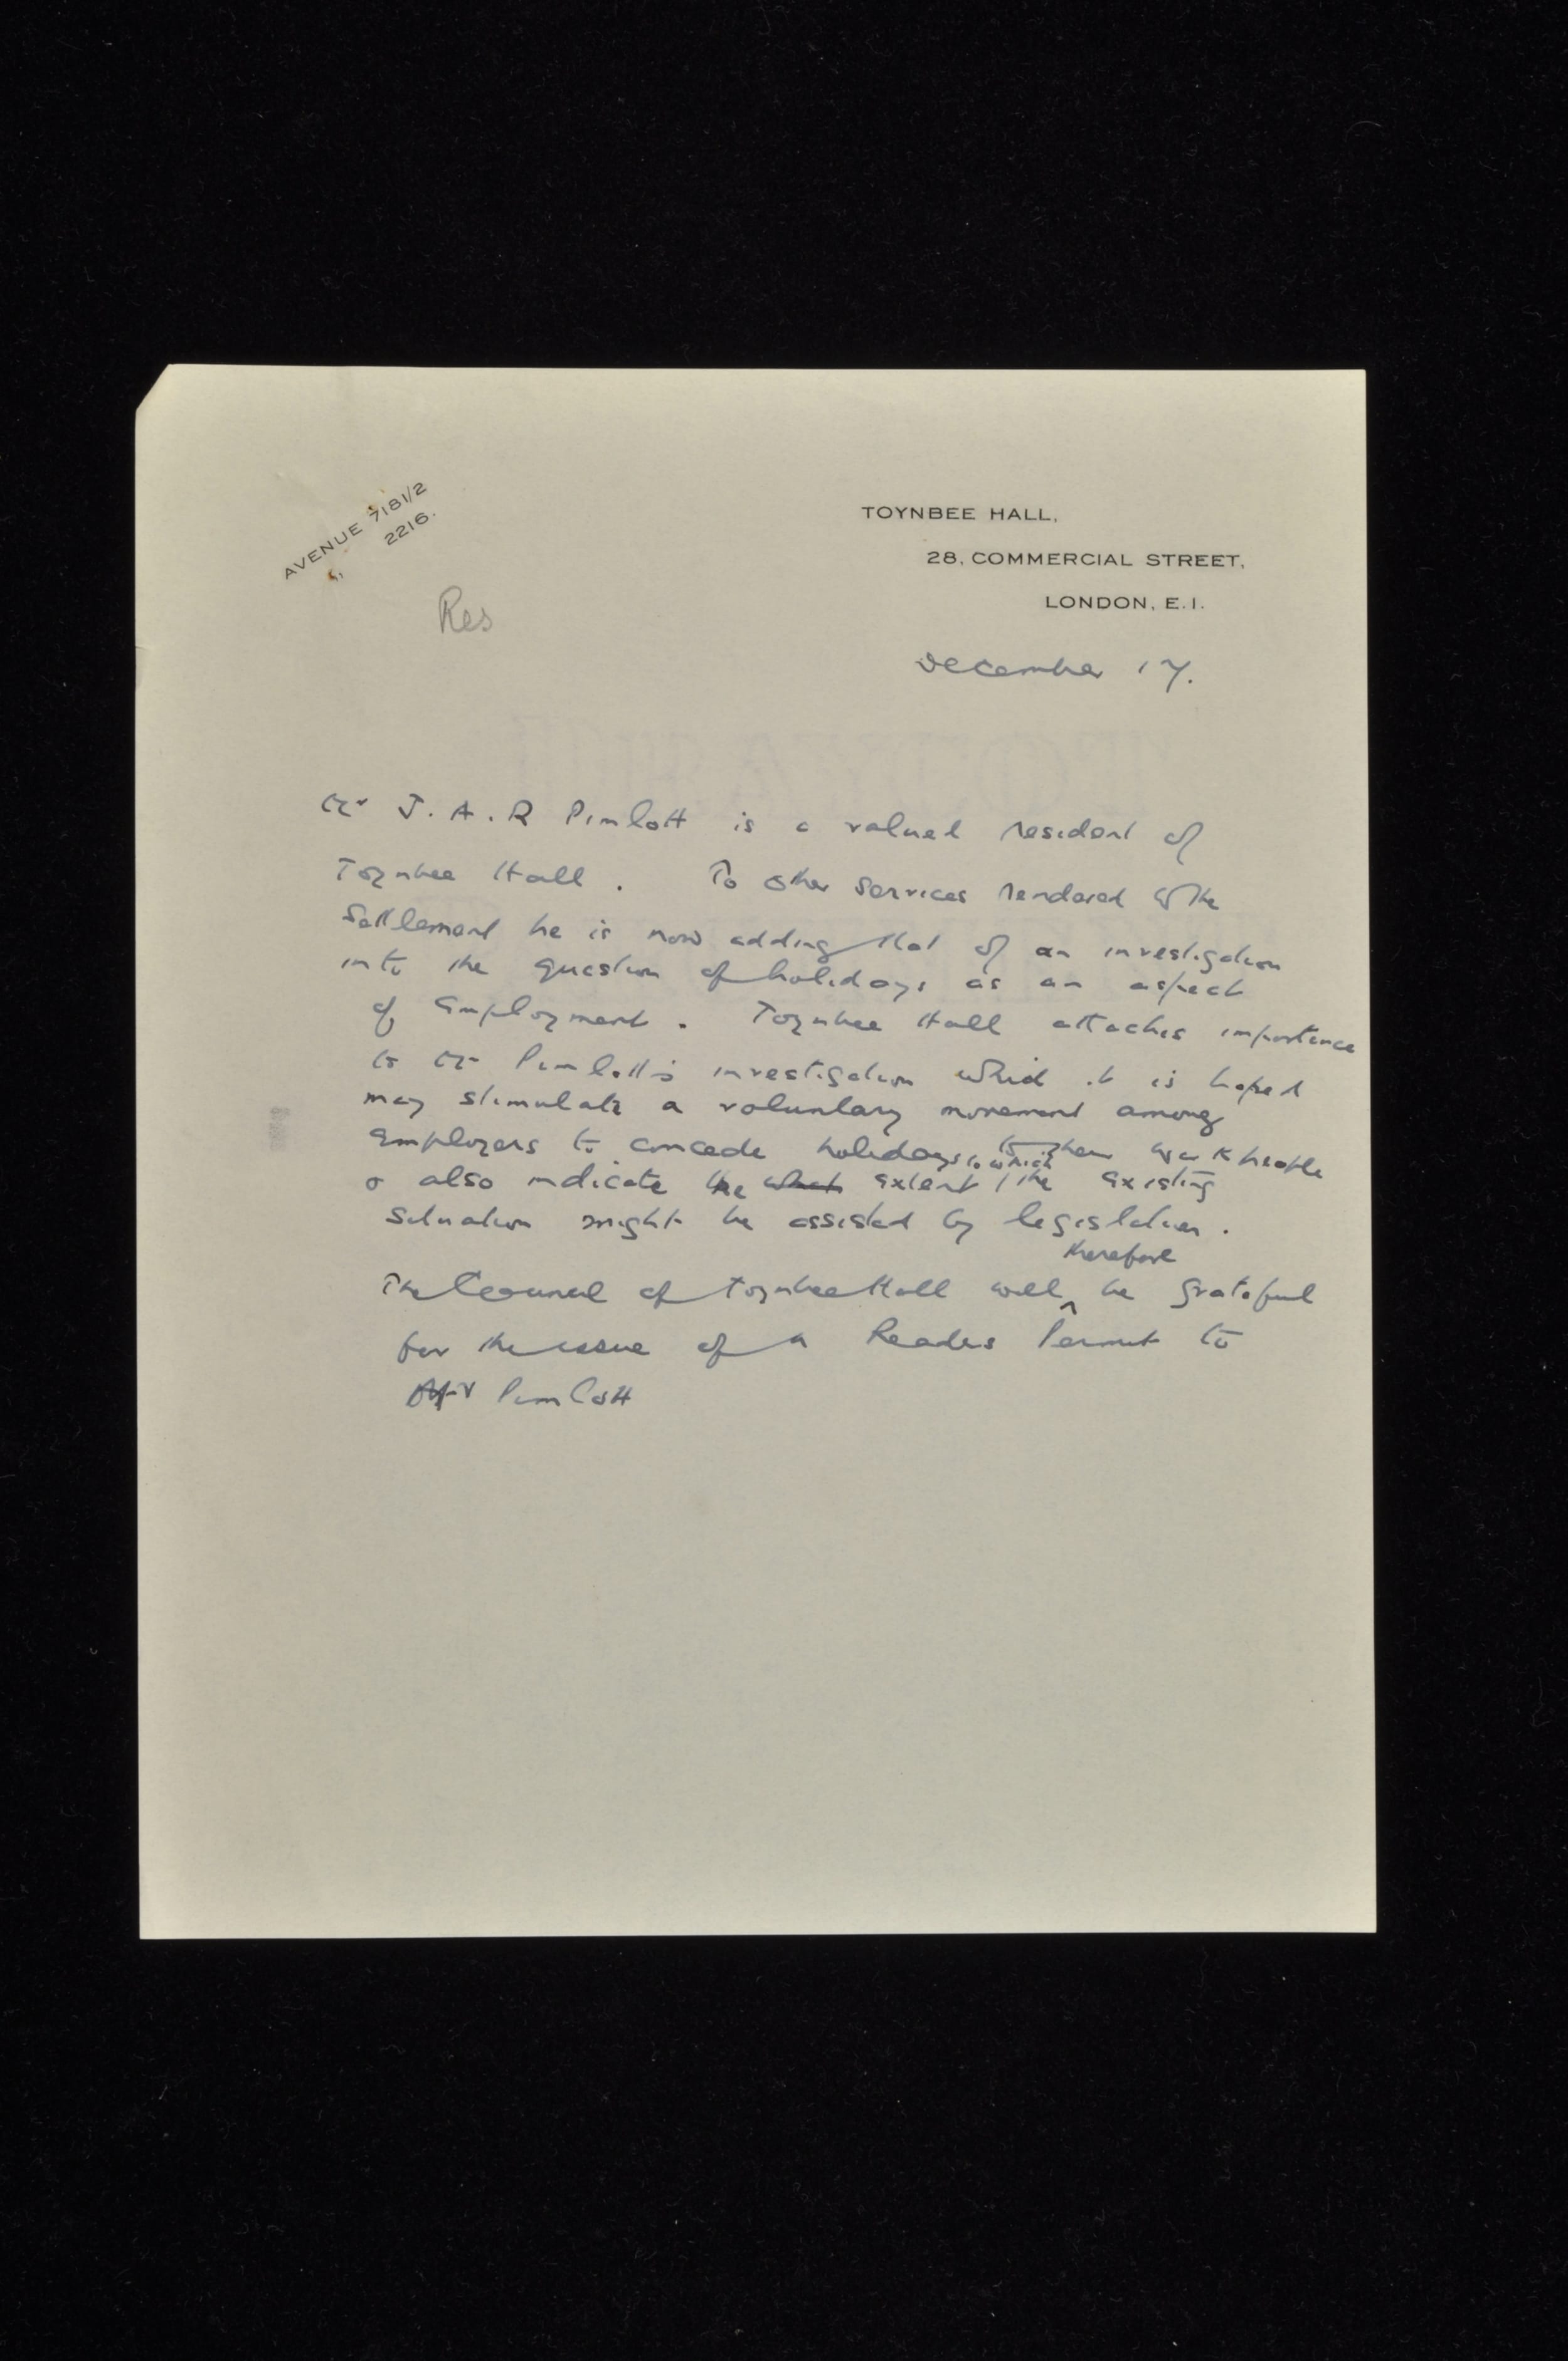 AVENUE 7181/2
" 2216.
TOYNBEE HALL,
28, COMMERCIAL STREET,
LONDON, E.1.
Res
December 17.
Mr J. A. R Pimlott is a valued resident of
Toynbee Hall. To other services rendered to the
Settlement he is now adding that of an investigation
into the question of holidays as an aspect
of Employment. Toynbee Hall attaches importance
to Mr Pimlott's investigation which it is hoped
may stimulate a voluntary movement among
Employers to concede holidays to their workpeople
& also indicate the what extent to which the existing
situation might be assisted by legislation.
therefore
The Council of Toynbee Hall will ^ be grateful
for the issue of a Readers Permit to
Mr Pimlott